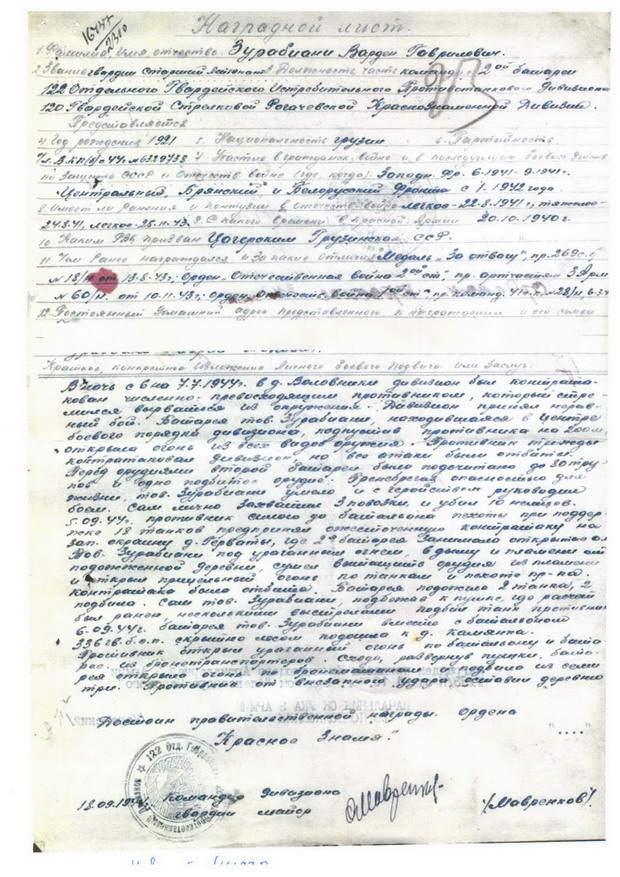 Наградной лист.
1. Фамилия, имя, отчество. Зурабиани Варден Гаврилович.
2. Звание гвардии старший лейтенант 3. Должность, часть командир 2ой батареи
122 Отдельного Гвардейского Истребительного Противотанкового Дивизиона
120. Гвардейской Стрелковой Рогачевской Краснознаменной Дивизии.
Представляется
4. Год рождения 1921 5. Национальность грузин 6. Партийность.
Чл. ВКП(б) с 44г. № 6329738 7. Участие в гражданск. войне и в последующих боевых действ
по защите СССР и Отечеств. войне (где, когда). Западн. Фр. 6-1941-9.1941г.
Центральный, Брянский и Белорусский Фронты с 1.1942 года.
8. Имеет ли ранения и контузии в Отечеств. войне легкое-22.8.1941г, тяжелое-
24.8.41, легкое-26.11.43. 9. С какого времени в Красной Армии 20.10.1940г.
10. Каким РВК призван Цагерским Грузинская ССР.
11. Чем ранее награждался и за какие отличия Медаль „За отвагу", пр. 269 с.д
№ 18/н от 13.8.43г. Орден. Отечественная война 2ой ст", пр. артчастям 3 Арм
№ 60/н. от 10.11.43г. Орден „Отечеств. война
12. Постоянный домашний адрес представленного к награждению и его семьи
Краткое, конкретное изложение личного боевого подвига или заслуг.
В ночь с 6 на 7.7.1944г. в д. Воловники дивизион был контрата-
кован численно-превосходящим противником, который стре-
мился вырваться из окружения. Дивизион принял нерав-
ный бой. Батарея тов. Зурабиани, находившаяся в центре
боевого порядка дивизиона, подпустив противника на 200м,
открыла огонь из всех видов оружия. Противник трижды
контратаковал дивизион, но все атаки были отбиты.
Перед орудиями второй батареи было подсчитано до 30 тру-
пов и одно подбитое орудие. Пренебрегая опасностью для
жизни, тов. Зурабиани умело и с геройством руководил
боем. Сам лично захватил 3 повозки и убил 10 немцев.
5.09.44г. противник силою до батальона пехоты при поддер-
жке 18 танков предпринял ожесточенную контратаку на
зап. окраину д. Герваты, где 2я батарея занимала открытою оп
Тов. Зурабиани под ураганным огнем, в дыму и пламени от
подожженной деревни, сумел вытащить орудия из пламени
и открыл прицельный огонь по танкам и пехоте пр-ка.
Контратака была отбита. Батарея подожгла 2 танка, 2
подбила. Сам тов. Зурабиани, подбежав к пушке, где расчет
был ранен несколькими выстрелами подбил танк противник
6.09.44г. батарея тов. Зурабиани вместе с батальоном
336 гв. с.п. скрытно лесом подошла к д. Камянка.
Противник открыл ураганный огонь по батальону и бата-
рее. из бронетранспортеров. Сходу, развернув пушки, бата-
рея открыла огонь по бронемашинам и подбила из семи
три. Противник от внезапного удара оставил деревню
Достоин правительственной награды. ордена
"Красное Знамя."
18.09.1944 Командир дивизиона
гвардии майор /Мавренков/.